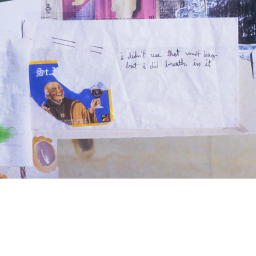 St.
i didn't use that vomit bag
but i did breath in it